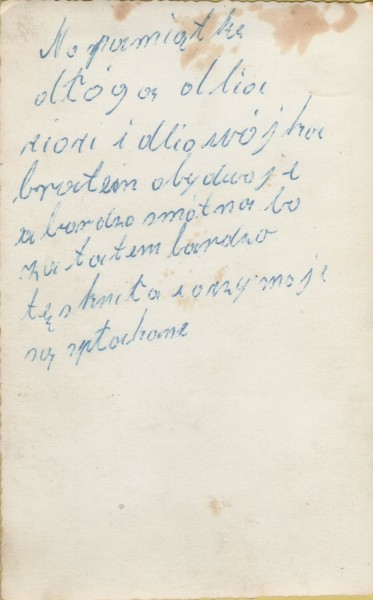 Na pamiątkę
dłógą dlia
ziozi i dlio wójka
bratem obydwoje
a bardzo smótna bo
za tatem bardzo
tęsknita i oczy moje
są zptakane